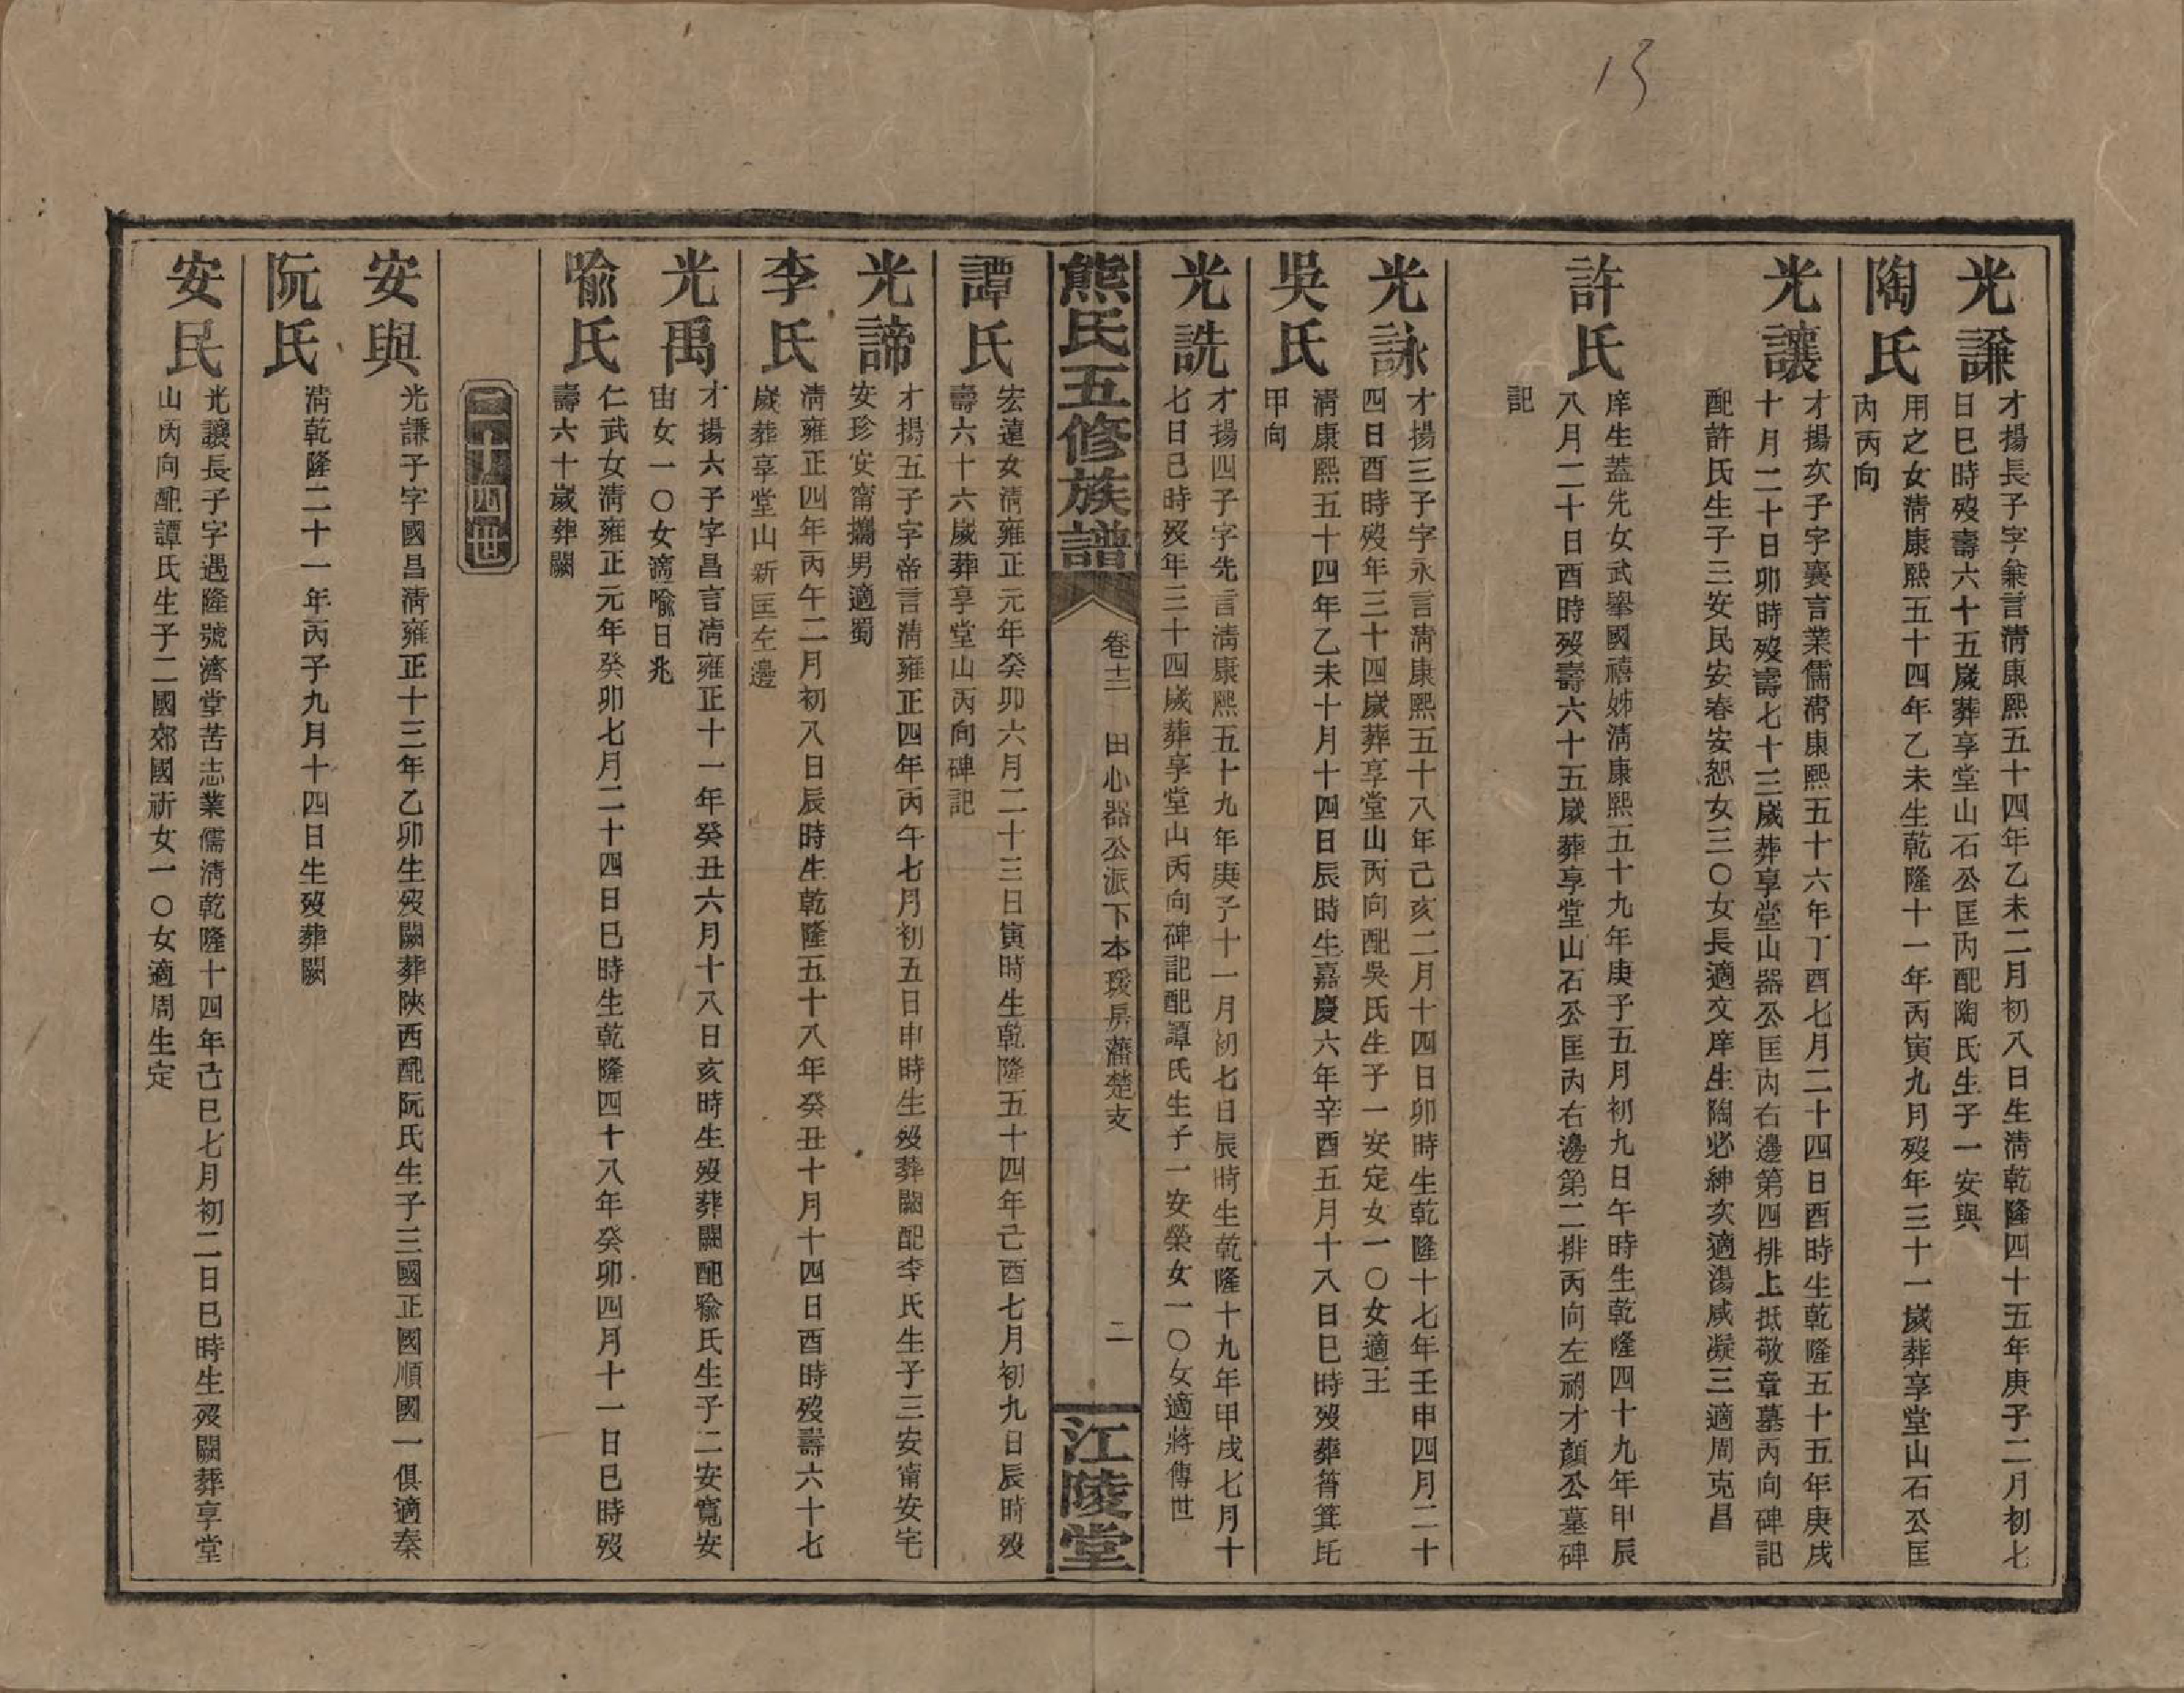 13
光謙
才揚長子字兼言淸康熙五十四年乙未二月初八日生淸乾隆四十五年庚子二月初七
日巳時歿壽六十五歲葬享堂山石公匡丙配陶氏生子一安與
陶氏
用之女淸康熙五十四年乙未生乾隆十一年丙寅九月歿年三十一歲葬享堂山石公匡
內丙向
光讓
才揚次子字襄言業儒淸康熙五十六年丁酉七月二十四日酉時生乾隆五十五年庚戌
十月二十日卯時歿壽七十三歲葬享堂山器公匡內右邊第四排上抵敬章墓丙向碑記
配許氏生子三安民安春安恕女三〇女長適文庠生陶必紳次適湯咸凝三適周克昌
許氏
庠生蓋先女武舉國禧姊淸康熙五十九年庚子五月初九日午時生乾隆四十九年甲辰
八月二十日酉時歿壽六十五歲葬享堂山石公匡內右邊第二排丙向左祔才顏公墓碑
記
光詠
才揚三子字永言淸康熙五十八年己亥二月十四日卯時生乾隆十七年壬申四月二十
四日酉時歿年三十四歲葬享堂山丙向配吳氏生子一安定女一〇女適王
吳氏
淸康熙五十四年乙未十月十四日辰時生嘉慶六年辛酉五月十八日巳時歿葬筲箕坉
甲向
光詵
才揚四子字先言淸康熙五十九年庚子十一月初七日辰時生乾隆十九年甲戌七月十
七日巳時歿年三十四歲葬享堂山丙向碑記配譚氏生子一安榮女一〇女適蔣傳世
熊氏五修族譜
卷十三
田心器公派下本瑗房藩楚支
二
江陵堂
譚氏
宏遠女淸雍正元年癸卯六月二十三日寅時生乾隆五十四年己酉七月初九日辰時歿
壽六十六歲葬享堂山丙向碑記
光諦
才揚五子字帝言淸雍正四年丙午七月初五日申時生歿葬闕配李氏生子三安甯安宅
安珍安甯攜男適蜀
李氏
淸雍正四年丙午二月初八日辰時生乾隆五十八年癸丑十月十四日酉時歿壽六十七
歲葬享堂山新匡左邊
光禹
才揚六子字昌言淸雍正十一年癸丑六月十八日亥時生歿葬闕配喻氏生子二安寬安
宙女一〇女適喻日兆
喻氏
仁武女淸雍正元年癸卯七月二十四日巳時生乾隆四十八年癸卯四月十一日巳時歿
壽六十歲葬闕
二十四世
安與
光謙子字國昌淸雍正十三年乙卯生歿闕葬陝西配阮氏生子三國正國順國一俱適秦
阮氏
淸乾隆二十一年丙子九月十四日生歿葬闕
安民
光讓長子字遇隆號濟堂苦志業儒淸乾隆十四年己巳七月初二日巳時生歿闕葬享堂
山丙向配譚氏生子二國郊國祈女一〇女適周生定